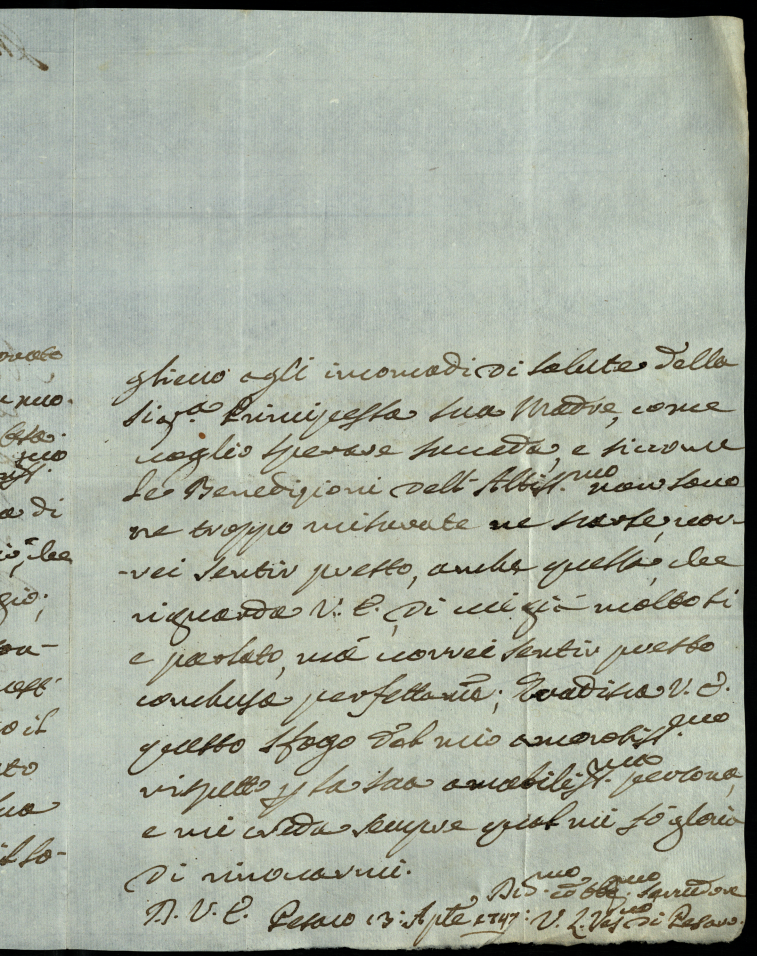 glieno agli incomodi di salute della
Sig.ra Principessa sua Madre, come
voglio sperare succeda, e siccome
le Benedizioni dell'Altiss.mo non sono
ne troppo misurate ne scarse, vor-
-rei sentir presto, anche quella, che
riguarda V. E., di cui già molto si
e parlato, mà vorrei sentir presto
conclusa perfettam.; Gradisca V. E.
questo sfogo del mio amorosiss.mo
rispetto p la sua amabiliss.ma persona,
e mi creda sempre qual mi fò gloria
di rinovarmi.
D. V. E. Pesaro 13: Aple 1747:
Div.mo ed Obb.mo Servidore
V. L. Ves.vo di Pesaro.